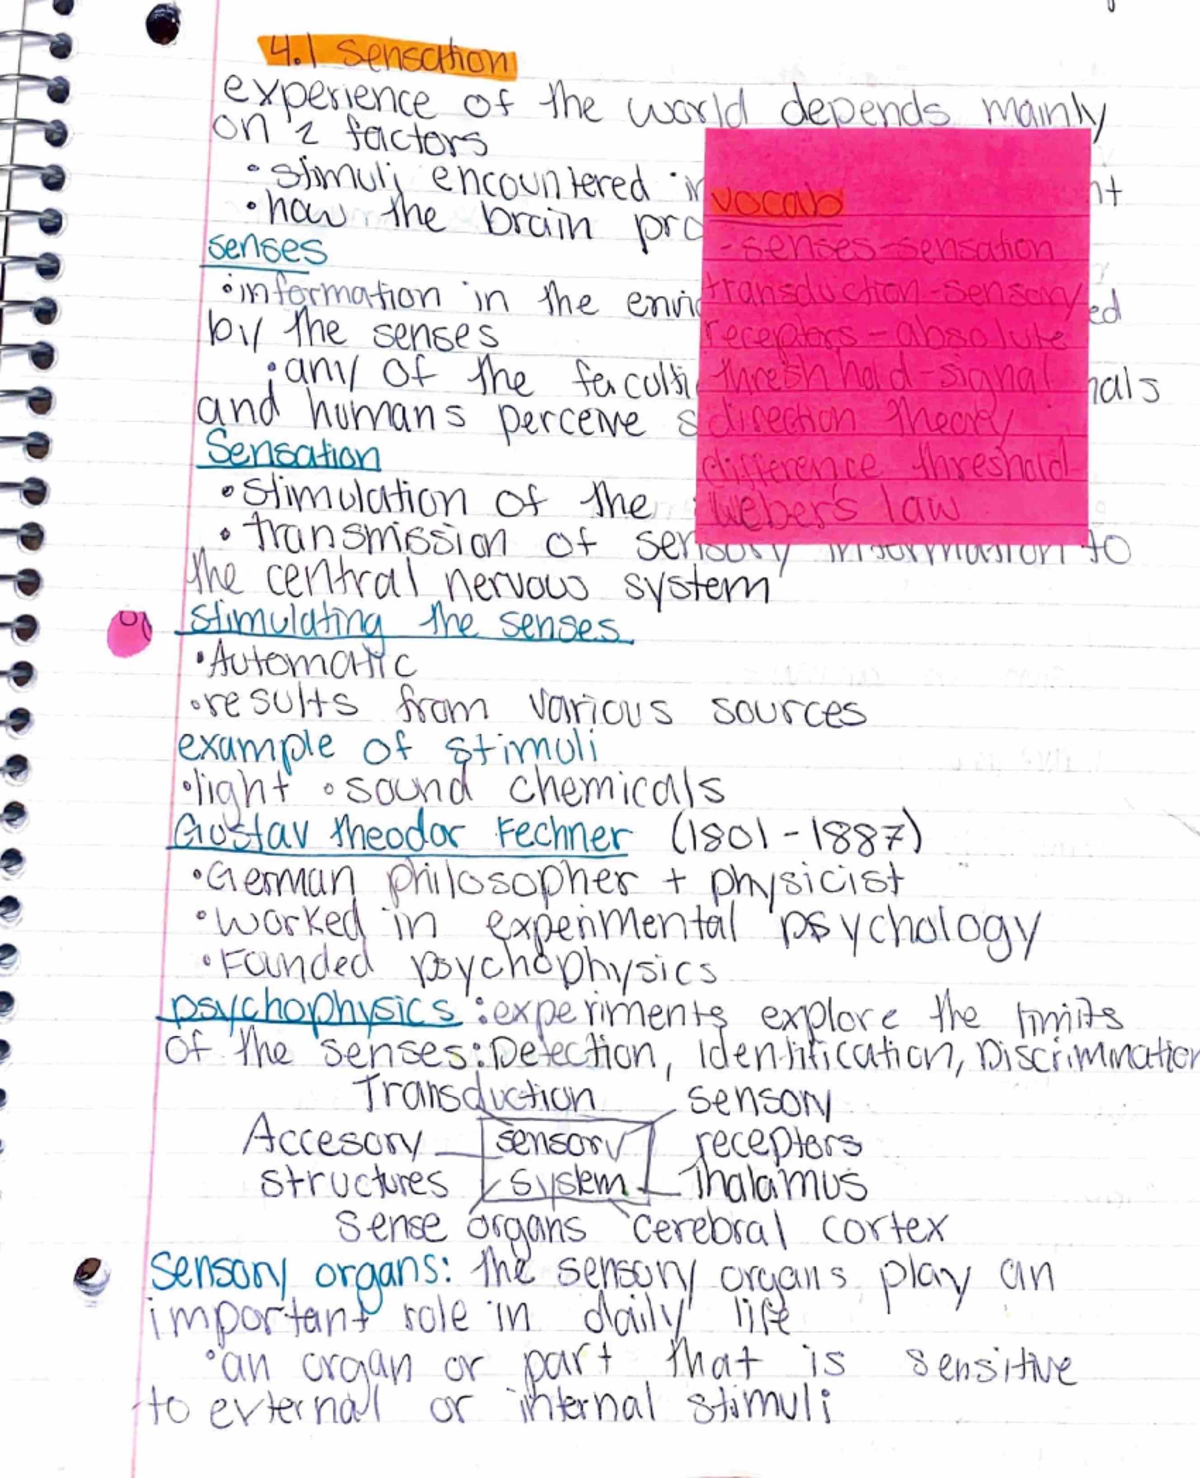 4.1 Sensation
experience of the world depends mainly
on 2 factors
• stimuli encountered in nt
• how the brain pro
senses
• information in the envi ed
by the senses
• any of the faculti nals
and humans perceive s
Sensation
• stimulation of the
• transmission of sensory information to
the central nervous system
stimulating the senses
• Automatic
• results from various sources
example of stimuli
• light • sound chemicals
Gustav Theodor Fechner (1801-1887)
• German philosopher + physicist
• worked in experimental psychology
• Founded psychophysics
psychophysics: experiments explore the limits
of the senses: Detection, Identification, Discrimination
Transduction sensory
Accesory sensory receptors
structures system Thalamus
Sense organs cerebral cortex
Sensory organs: the sensory organs play an
important role in daily life
• an organ or part that is sensitive
to external or internal stimuli
vocab
-senses-sensation
transduction-sensory
receptors-absolute
threshhold-signal
direction theory
difference threshold
Weber's law